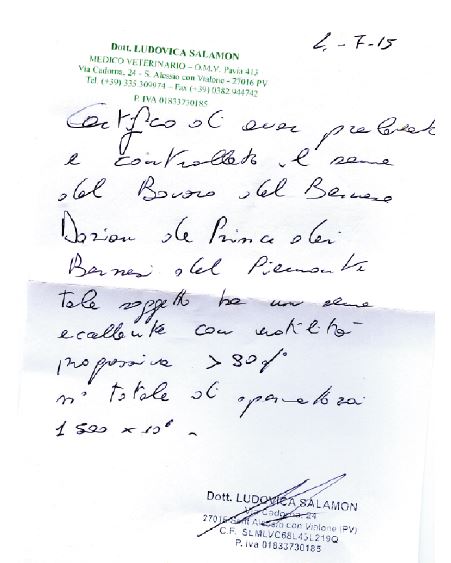 Dott. LUDOVICA SALAMON
MEDICO VETERINARIO - O.M.V. Pavia 413
Via Cadorna, 24 - S. Alessio con Vialone - 27016 PV
Tel. (+39) 335.309974 - Fax (+39) 0382.944742
P. IVA 01833730185
2.-7-15
Certifico di aver prelevato
e controllato il seme
del Bovaro del Bernese
Dorian de Prince dei
Bernesi del Piemonte
tale soggetto ha un seme
eccellente con motilità
progressiva > 90%
n° totale di spermatozoi
1500 x 10⁶ .
Dott. LUDOVICA SALAMON
Via Cadorna, 24
27016 Sant'Alessio con Vialone (PV)
C.F. SLMLVC68L45L219Q
P. Iva 01833730185